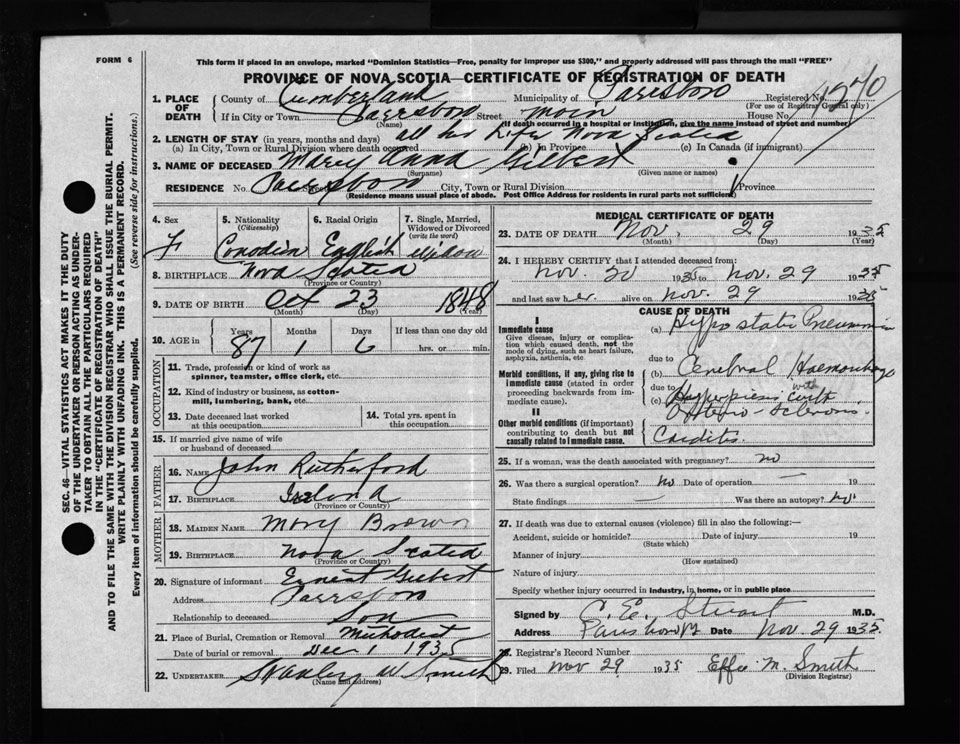 FORM 6
This form if placed in an envelope, marked "Dominion Statistics—Free, penalty for improper use $300," and properly addressed will pass through the mail "FREE"
PROVINCE OF NOVA SCOTIA—CERTIFICATE OF REGISTRATION OF DEATH
1. PLACE OF DEATH
County of Cumberland Municipality of Parrsboro Registered No.
(For use of Registrar General only)
If in City or Town Parrsboro Street Main House No.
(Name) (If death occurred in a hospital or institution, give the name instead of street and number)
2. LENGTH OF STAY (in years, months and days) all her Life Nova Scotia
(a) In City, Town or Rural Division where death occurred (b) In Province (c) In Canada (if immigrant)
3. NAME OF DECEASED Mary Anna Gilbert
(Surname) (Given name or names)
RESIDENCE No. Street Parrsboro City, Town or Rural Division Province
(Residence means usual place of abode. Post Office Address for residents in rural parts not sufficient)
4. Sex F
5. Nationality (Citizenship) Canadian
6. Racial Origin English
7. Single, Married, Widowed or Divorced (write the word) widow
8. BIRTHPLACE Nova Scotia
(Province or Country)
9. DATE OF BIRTH Oct 23 1848
(Month) (Day) (Year)
10. AGE in Years 87 Months 1 Days 6 If less than one day old hrs. or min.
OCCUPATION
11. Trade, profession or kind of work as spinner, teamster, office clerk, etc.
12. Kind of industry or business, as cotton-mill, lumbering, bank, etc.
13. Date deceased last worked at this occupation
14. Total yrs. spent in this occupation
15. If married give name of wife or husband of deceased
FATHER
16. NAME John Rutherford
17. BIRTHPLACE
(Province or Country)
MOTHER
18. MAIDEN NAME Mary Brown
19. BIRTHPLACE Nova Scotia
(Province or Country)
20. Signature of informant Ernest Gilbert
Address Parrsboro
Relationship to deceased Son
21. Place of Burial, Cremation or Removal Methodist
Date of burial or removal Dec 1 1935
22. UNDERTAKER Stanley W Smith
(Name and Address)
MEDICAL CERTIFICATE OF DEATH
23. DATE OF DEATH Nov. 29 1935
(Month) (Day) (Year)
24. I HEREBY CERTIFY that I attended deceased from:
Nov. 20 1935 to Nov. 29 1935
and last saw her alive on Nov. 29 1935
CAUSE OF DEATH
I
Immediate cause
Give disease, injury or complication which caused death, not the mode of dying, such as heart failure, asphyxia, asthenia, etc.
(a) Hypostatic Pneumonia
due to
Morbid conditions, if any, giving rise to immediate cause (stated in order proceeding backwards from immediate cause).
(b) Cerebral Haemorrhage
due to
(c) Hyperpiesis with
Arterio-Sclerosis
II
Other morbid conditions (if important) contributing to death but not causally related to immediate cause.
Carditis.
25. If a woman, was the death associated with pregnancy? no
26. Was there a surgical operation? No Date of operation — 19
State findings — Was there an autopsy? No
27. If death was due to external causes (violence) fill in also the following:—
Accident, suicide or homicide? Date of injury 19
(State which)
Manner of injury
(How sustained)
Nature of injury
Specify whether injury occurred in industry, in home, or in public place
Signed by C. E. Stuart M.D.
Address Date Nov. 29 1935
28. Registrar's Record Number
29. Filed Nov 29 1935 Effie M. Smith
(Division Registrar)
SEC. 46—VITAL STATISTICS ACT MAKES IT THE DUTY
OF THE UNDERTAKER OR PERSON ACTING AS UNDER-
TAKER TO OBTAIN ALL THE PARTICULARS REQUIRED
IN THE "CERTIFICATE OF REGISTRATION OF DEATH"
AND TO FILE THE SAME WITH THE DIVISION REGISTRAR WHO SHALL ISSUE THE BURIAL PERMIT.
WRITE PLAINLY WITH UNFADING INK. THIS IS A PERMANENT RECORD.
Every item of information should be carefully supplied. (See reverse side for instructions.)